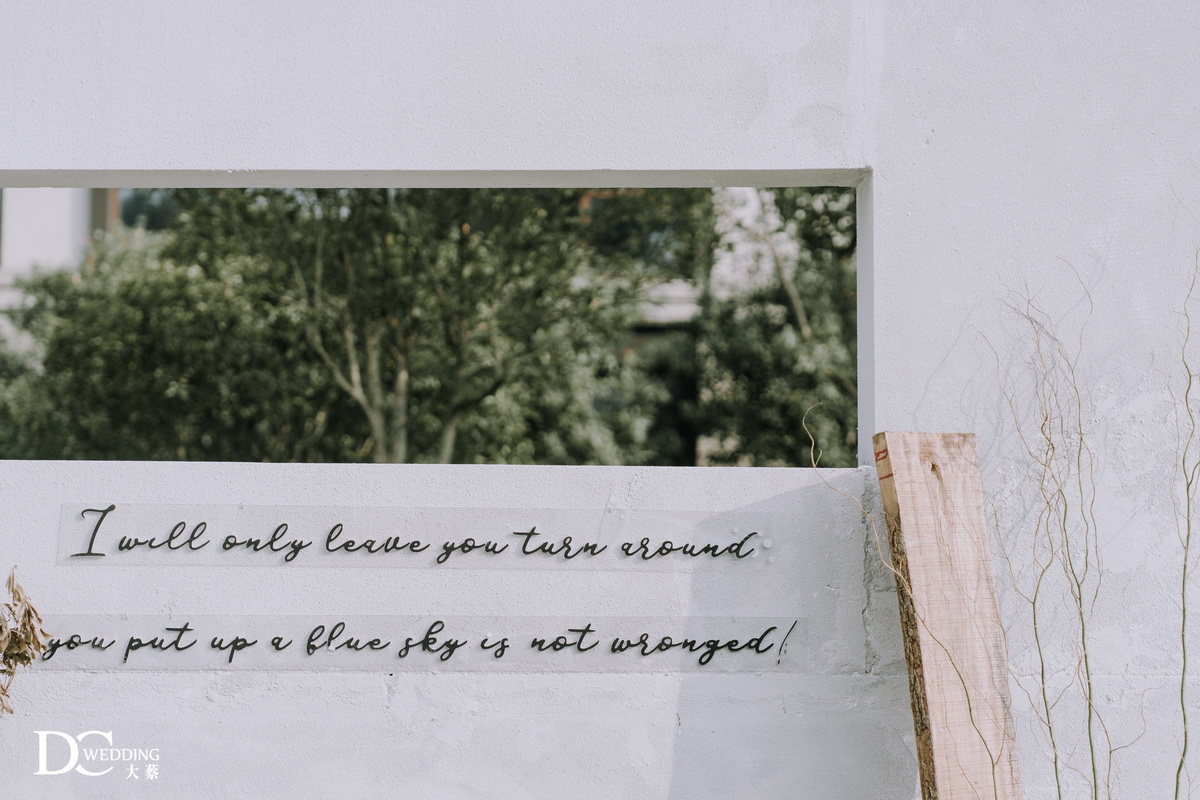 I will only leave you turn around
you put up a blue sky is not wronged!
DC WEDDING
大蔡